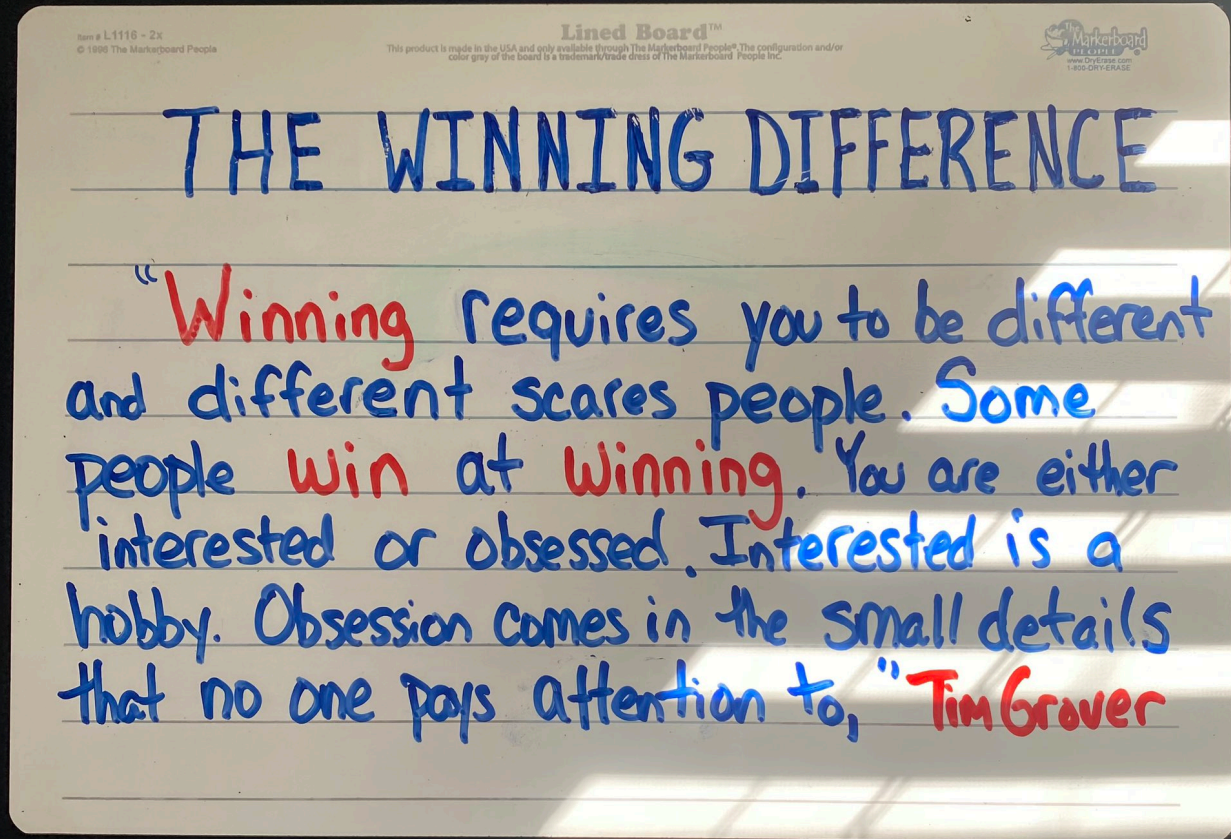 Item # L1116 - 2x
© 1998 The Markerboard People
Lined Board™
This product is made in the USA and only available through The Markerboard People®. The configuration and/or
color gray of the board is a trademark/trade dress of The Markerboard People Inc.
The
Markerboard
PEOPLE
www.DryErase.com
1-800-DRY-ERASE
THE WINNING DIFFERENCE
“Winning requires you to be different
and different scares people. Some
people win at winning. You are either
interested or obsessed. Interested is a
hobby. Obsession comes in the small details
that no one pays attention to,” Tim Grover